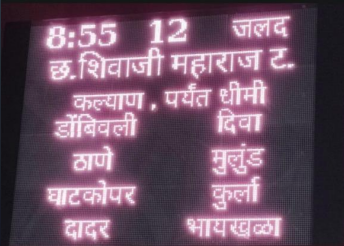 8:55 12 जलद
छ.शिवाजी महाराज ट.
कल्याण , पर्यंत धीमी
डोंबिवली दिवा
ठाणे मुलुंड
घाटकोपर कुर्ला
दादर भायखळा